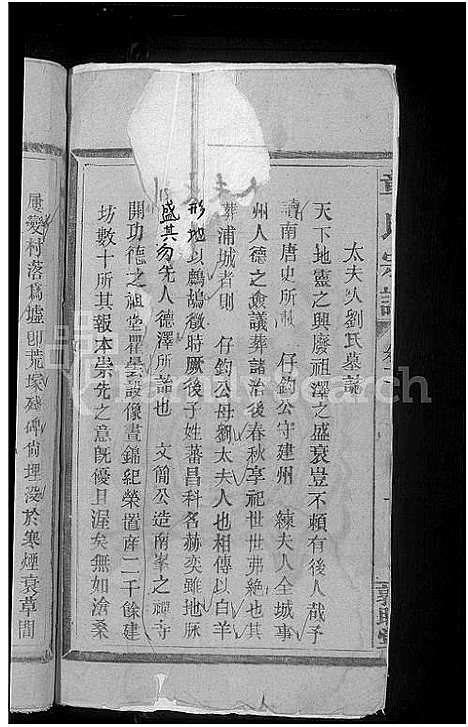 太夫人劉氏墓誌
天下地靈之興廢祖澤之盛衰豈不頼有後人哉予
讀南唐史所載 仔鈞公守建州 練夫人全城事
州人德之僉議葬諸治後春秋享祀世世弗絶也其
葬浦城者則 仔鈞公母劉太夫人也相傳以白羊
形地以鷓鴣徵時厥後子姓蕃昌科名赫奕雖地脉
盛其勿先人德澤所詒也 文簡公造南峯之禪寺
開功德之祖堂畢曇設像晝錦紀榮置產二千餘建
坊數十所其報本崇先之意旣優且渥矣無如滄桑
屢變村落爲墟卽荒塚殘碑尙埋没於寒煙衰草間
氏宗譜